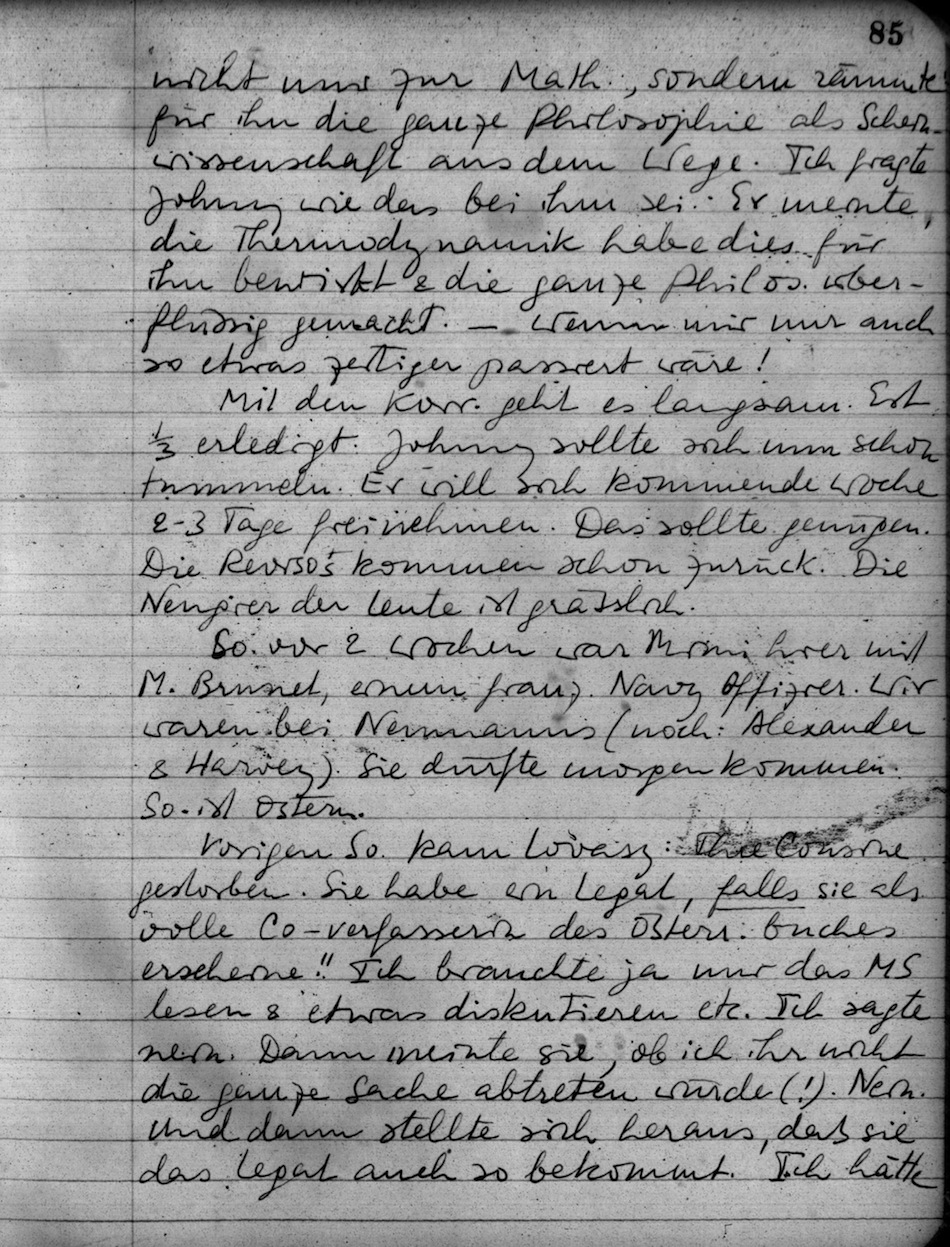 85
nicht nur zur Math., sondern räumte
für ihn die ganze Philosophie als Schein-
wissenschaft aus dem Wege. Ich fragte
Johnny wie das bei ihm sei. Er meinte,
die Thermodynamik habe dies für
ihn bewirkt & die ganze Philos. über-
flüssig gemacht. — Wenn mir nur auch
so etwas zeitiger passiert wäre!
Mit den Korr. geht es langsam. Erst
⅓ erledigt. Johnny sollte sich nun schon
tummeln. Er will sich kommende Woche
2-3 Tage freinehmen. Das sollte genügen.
Die kommen schon zurück. Die
Neugier der Leute ist grässlich.
So. vor 2 Wochen war Mimi hier mit
M. Brunel, einem franz. Navy Offizier. Wir
waren bei Neumanns (noch: Alexander
& Harvey). Sie dürfte morgen kommen.
So. ist Ostern.
Vorigen So. kam Lovasz: Ihre Cousine
gestorben. Sie habe ein Legat, falls sie als
volle Co-verfasserin des Österr. buches
erscheine!! Ich brauchte ja nur das MS
lesen & etwas diskutieren etc. Ich sagte
nein. Dann meinte sie, ob ich ihr nicht
die ganze Sache abtreten würde (!). Nein.
Und dann stellte sich heraus, daß sie
das Legat auch so bekommt. Ich hätte